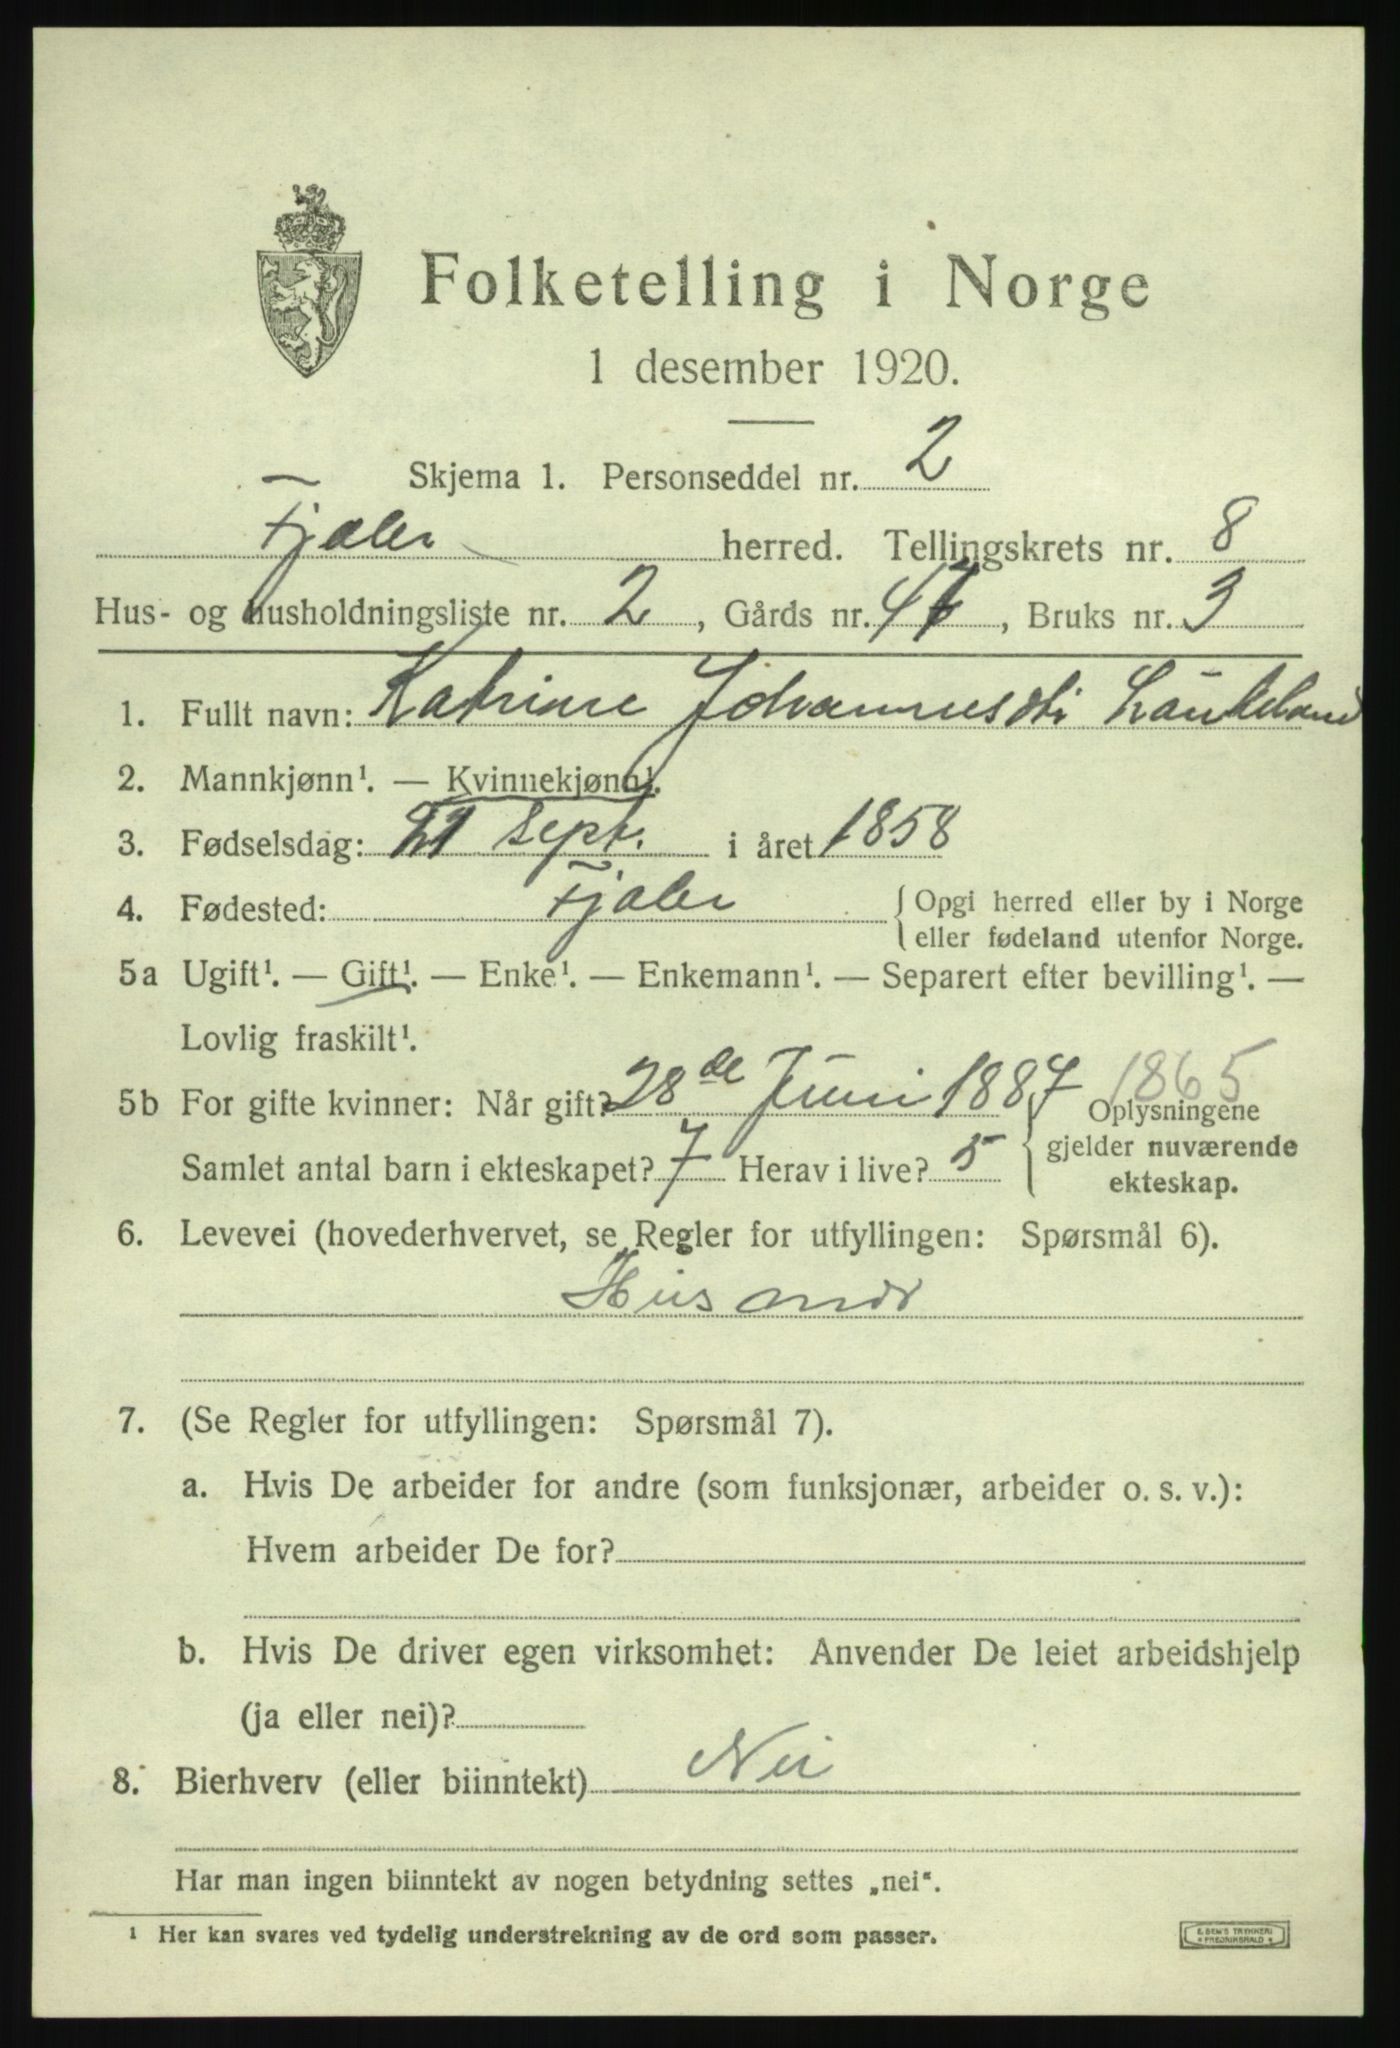 Folketelling i Norge
1 desember 1920.
Skjema 1. Personseddel nr. 2
Fjaler herred. Tellingskrets nr. 8
Hus- og husholdningsliste nr. 2, Gårds nr. 47, Bruks nr. 3
1. Fullt navn: Katrine Johannesdtr
2. Mannkjønn¹. — Kvinnekjønn¹.
3. Fødselsdag: 21 Sept. i året 1858
4. Fødested: Fjaler { Opgi herred eller by i Norge
eller fødeland utenfor Norge.
5a Ugift¹. — Gift¹. — Enke¹. — Enkemann¹. — Separert efter bevilling¹. —
Lovlig fraskilt¹.
5b For gifte kvinner: Når gift? 28de Juni 1887 1865
Samlet antal barn i ekteskapet? 7 Herav i live? 5
{ Oplysningene
gjelder nuværende
ekteskap.
6. Levevei (hovederhvervet, se Regler for utfyllingen: Spørsmål 6).
Husmor
7. (Se Regler for utfyllingen: Spørsmål 7).
a. Hvis De arbeider for andre (som funksjonær, arbeider o. s. v.):
Hvem arbeider De for?
b. Hvis De driver egen virksomhet: Anvender De leiet arbeidshjelp
(ja eller nei)?
8. Bierhverv (eller biinntekt) Nei
Har man ingen biinntekt av nogen betydning settes „nei“.
¹ Her kan svares ved tydelig understrekning av de ord som passer.
E. SEM'S TRYKKERI
FREDRIKSHALD